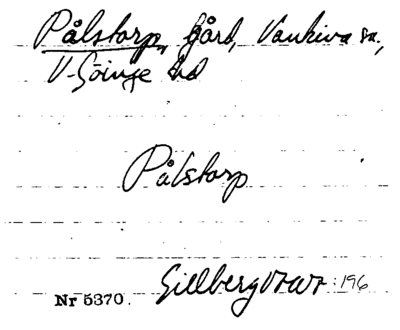 Pålstorp, gård, Vankiva sn,
V-Göinge hd
Pålstorp
Gillberg 1765 : 196
Nr 5370.